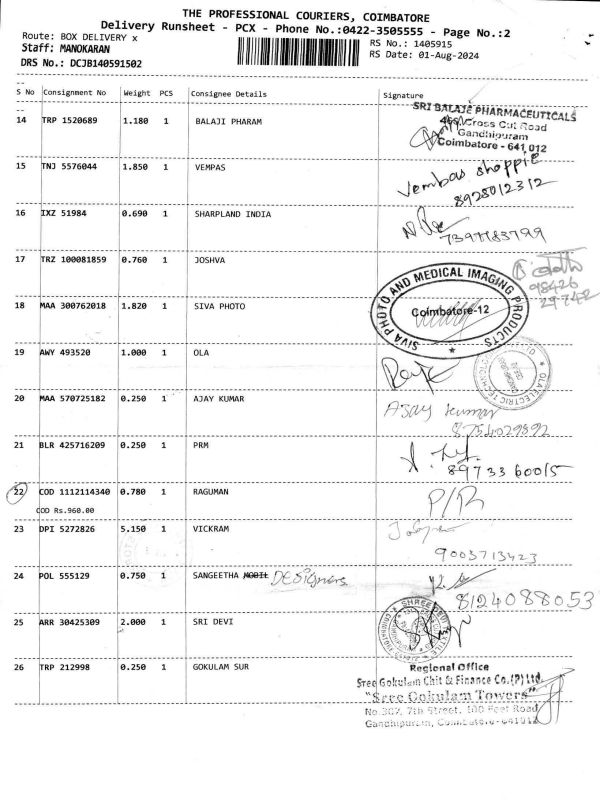 THE PROFESSIONAL COURIERS, COIMBATORE
Delivery Runsheet - PCX - Phone No.:0422-3505555 - Page No.:2
Route: BOX DELIVERY x
RS No.: 1405915
Staff: MANOKARAN
RS Date: 01-Aug-2024
DRS No.: DCJB140591502
S No Consignment No Weight PCS Consignee Details Signature
14 TRP 1520689 1.180 1 BALAJI PHARAM
SRI BALAJE PHARMACEUTICALS
Cross Cut Road
Gandhipuram
Coimbatore - 641 012
15 TNJ 5576044 1.850 1 VEMPAS
Vembas shoppie
8928012312
16 IXZ 51984 0.690 1 SHARPLAND INDIA
7397783799
17 TRZ 100081859 0.760 1 JOSHVA
98426
29742
18 MAA 300762018 1.820 1 SIVA PHOTO
SIVA PHOTO AND MEDICAL IMAGING PRODUCTS
Coimbatore-12
19 AWY 493520 1.000 1 OLA
OLA ELECTRIC
20 MAA 570725182 0.250 1 AJAY KUMAR
Ajay kumar
8754029892
21 BLR 425716209 0.250 1 PRM
8973360015
22 COD 1112114340 0.780 1 RAGUMAN
P/R
COD Rs.960.00
23 DPI 5272826 5.150 1 VICKRAM
9003713423
24 POL 555129 0.750 1 SANGEETHA Designers
8124088053
25 ARR 30425309 2.000 1 SRI DEVI
SHREE DEVI TEXTILE
26 TRP 212998 0.250 1 GOKULAM SUR
Regional Office
Sree Gokulam Chit & Finance Co.(P) Ltd.
"Sree Gokulam Towers"
No.307, 7th Street, 100 Feet Road
Gandhipuram, Coimbatore-641012